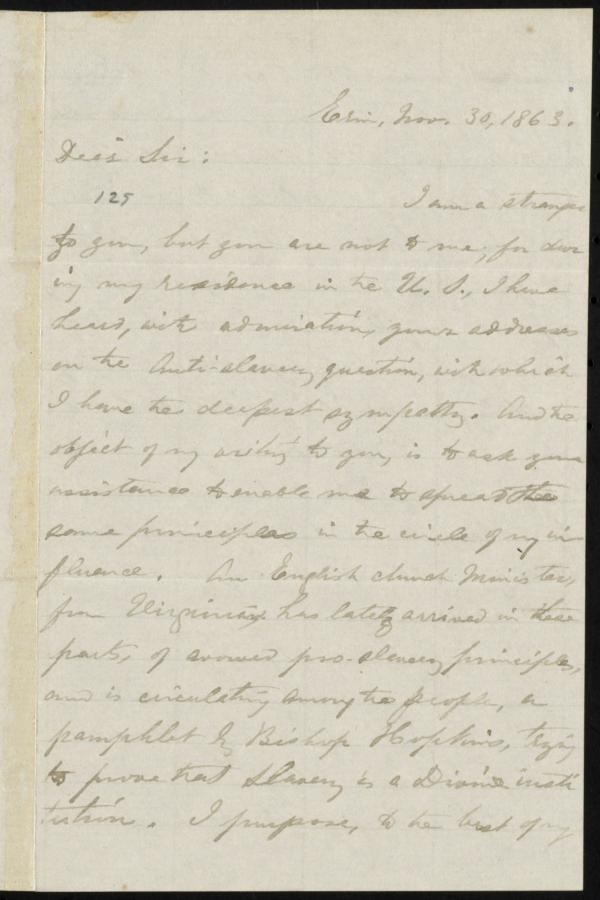 Erin, Nov. 30, 1863.
Dear Sir:
125
I am a stranger
to you, but you are not to me; for dur
ing my residence in the U. S., I have
heard, with admiration, your addresses
on the Anti-slavery question, with which
I have the deepest sympathy. And the
object of my writing to you, is to ask your
assistance to enable me to spread the
same principles in the circle of my in
fluence. An English church Minister,
from Virginia has lately arrived in these
parts, of avowed pro-slavery principles,
and is circulating among the people, a
pamphlet by Bishop Hopkins, trying
to prove that slavery is a Divine insti
tution. I purpose, to the best of my